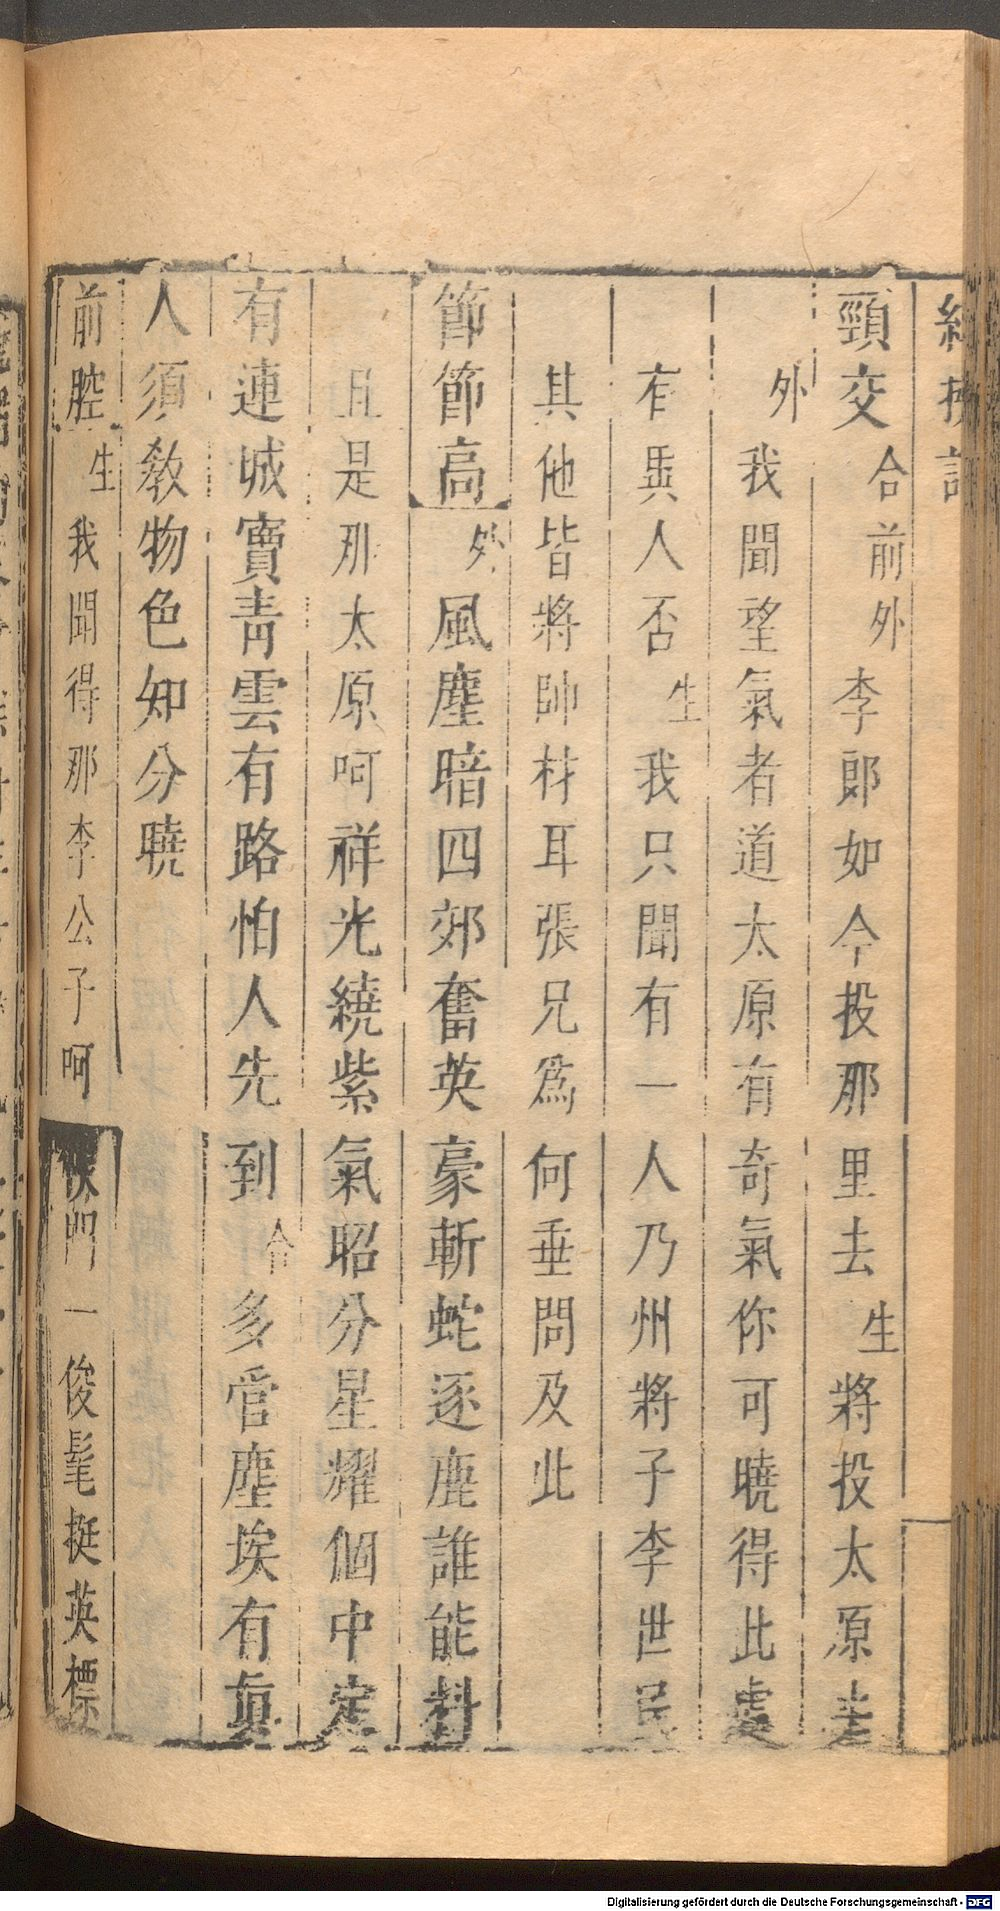 紅拂記
頸交合前外李郎如今投那里去生將投太原去
外我聞望氣者道太原有奇氣你可曉得此處
有異人否生我只聞有一人乃州將子李世民
其他皆將帥材耳張兄爲何垂問及此
節節高外風塵暗四郊奮英豪斬蛇逐鹿誰能料
且是那太原呵祥光繞紫氣昭分星耀個中定
有連城寶靑雲有路怕人先到合多管塵埃有眞
人須教物色知分曉
前腔生我聞得那李公子呵門一俊髦挺英標
Digitalisierung gefördert durch die Deutsche Forschungsgemeinschaft - DFG